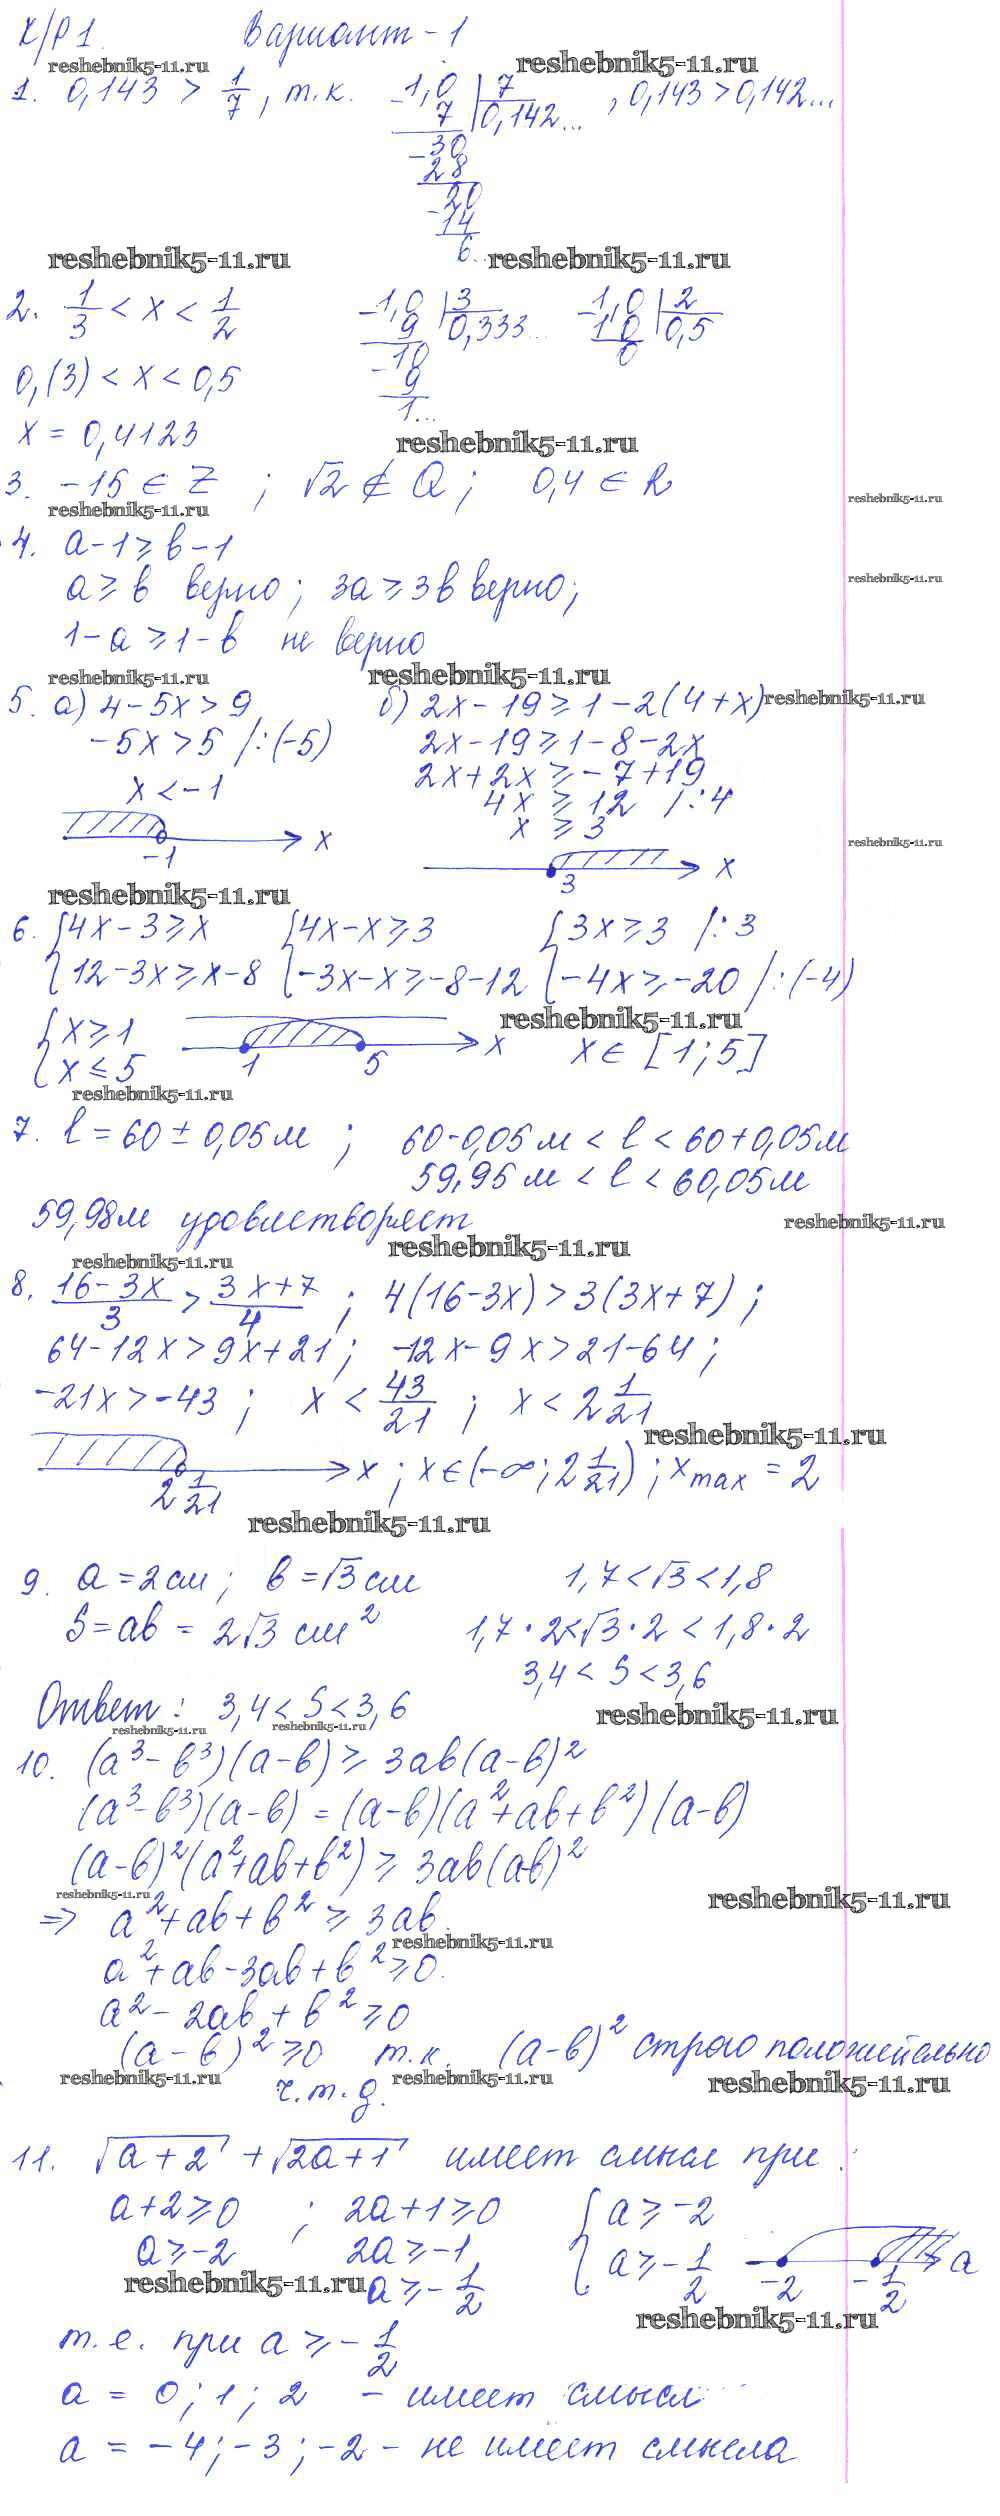 К/Р 1. Вариант - 1
reshebnik5-11.ru reshebnik5-11.ru
1. 0,143 > 1/7, т.к. -1,0 | 7 , 0,143 > 0,142...
7 0,142...
-30
28
-20
14
6...
reshebnik5-11.ru reshebnik5-11.ru
2. 1/3 < x < 1/2 -1,0 | 3 -1,0 | 2
9 0,333... 1 0 0,5
0,(3) < x < 0,5 -10 0
9
1...
x = 0,4123 reshebnik5-11.ru
3. -15 ∈ Z ; √2 ∉ Q ; 0,4 ∈ R
reshebnik5-11.ru reshebnik5-11.ru
4. a - 1 ≥ b - 1
a ≥ b верно ; 3a ≥ 3b верно; reshebnik5-11.ru
1 - a ≥ 1 - b не верно
reshebnik5-11.ru reshebnik5-11.ru
5. а) 4 - 5x > 9 б) 2x - 19 ≥ 1 - 2(4 + x) reshebnik5-11.ru
-5x > 5 /:(-5) 2x - 19 ≥ 1 - 8 - 2x
x < -1 2x + 2x ≥ -7 + 19
4x ≥ 12 /:4
x x ≥ 3
-1 reshebnik5-11.ru
x
3
reshebnik5-11.ru
6. { 4x - 3 ≥ x { 4x - x ≥ 3 { 3x ≥ 3 /:3
{ 12 - 3x ≥ x - 8 { -3x - x ≥ -8 - 12 { -4x ≥ -20 /:(-4)
reshebnik5-11.ru
{ x ≥ 1 x x ∈ [1; 5]
{ x ≤ 5 1 5
reshebnik5-11.ru
7. l = 60 ± 0,05 м ; 60 - 0,05 м < l < 60 + 0,05 м
59,95 м < l < 60,05 м
59,98 м удовлетворяет reshebnik5-11.ru
reshebnik5-11.ru
reshebnik5-11.ru
8. (16 - 3x)/3 > (3x + 7)/4 ; 4(16 - 3x) > 3(3x + 7) ;
64 - 12x > 9x + 21 ; -12x - 9x > 21 - 64 ;
-21x > -43 ; x < 43/21 ; x < 2 1/21
reshebnik5-11.ru
x ; x ∈ (-∞; 2 1/21) ; x max = 2
2 1/21
reshebnik5-11.ru
9. a = 2 см ; b = √3 см 1,7 < √3 < 1,8
S = ab = 2√3 см² 1,7 · 2 < √3 · 2 < 1,8 · 2
3,4 < S < 3,6
Ответ : 3,4 < S < 3,6 reshebnik5-11.ru
reshebnik5-11.ru reshebnik5-11.ru
10. (a³ - b³)(a - b) ≥ 3ab(a - b)²
(a³ - b³)(a - b) = (a - b)(a² + ab + b²)(a - b)
(a - b)²(a² + ab + b²) ≥ 3ab(ab)²
reshebnik5-11.ru reshebnik5-11.ru
⇒ a² + ab + b² ≥ 3ab.
reshebnik5-11.ru
a² + ab - 3ab + b² ≥ 0.
a² - 2ab + b² ≥ 0
(a - b)² ≥ 0 т.к. (a - b)² строго положительно
reshebnik5-11.ru reshebnik5-11.ru reshebnik5-11.ru
ч.т.д.
11. √(a + 2) + √(2a + 1) имеет смысл при :
a + 2 ≥ 0 ; 2a + 1 ≥ 0 { a ≥ -2
a ≥ -2 2a ≥ -1 { a ≥ -1/2 a
reshebnik5-11.ru a ≥ -1/2 -2 -1/2
reshebnik5-11.ru
т.е. при a ≥ -1/2
a = 0; 1; 2 - имеет смысл
a = -4; -3; -2 - не имеет смысла